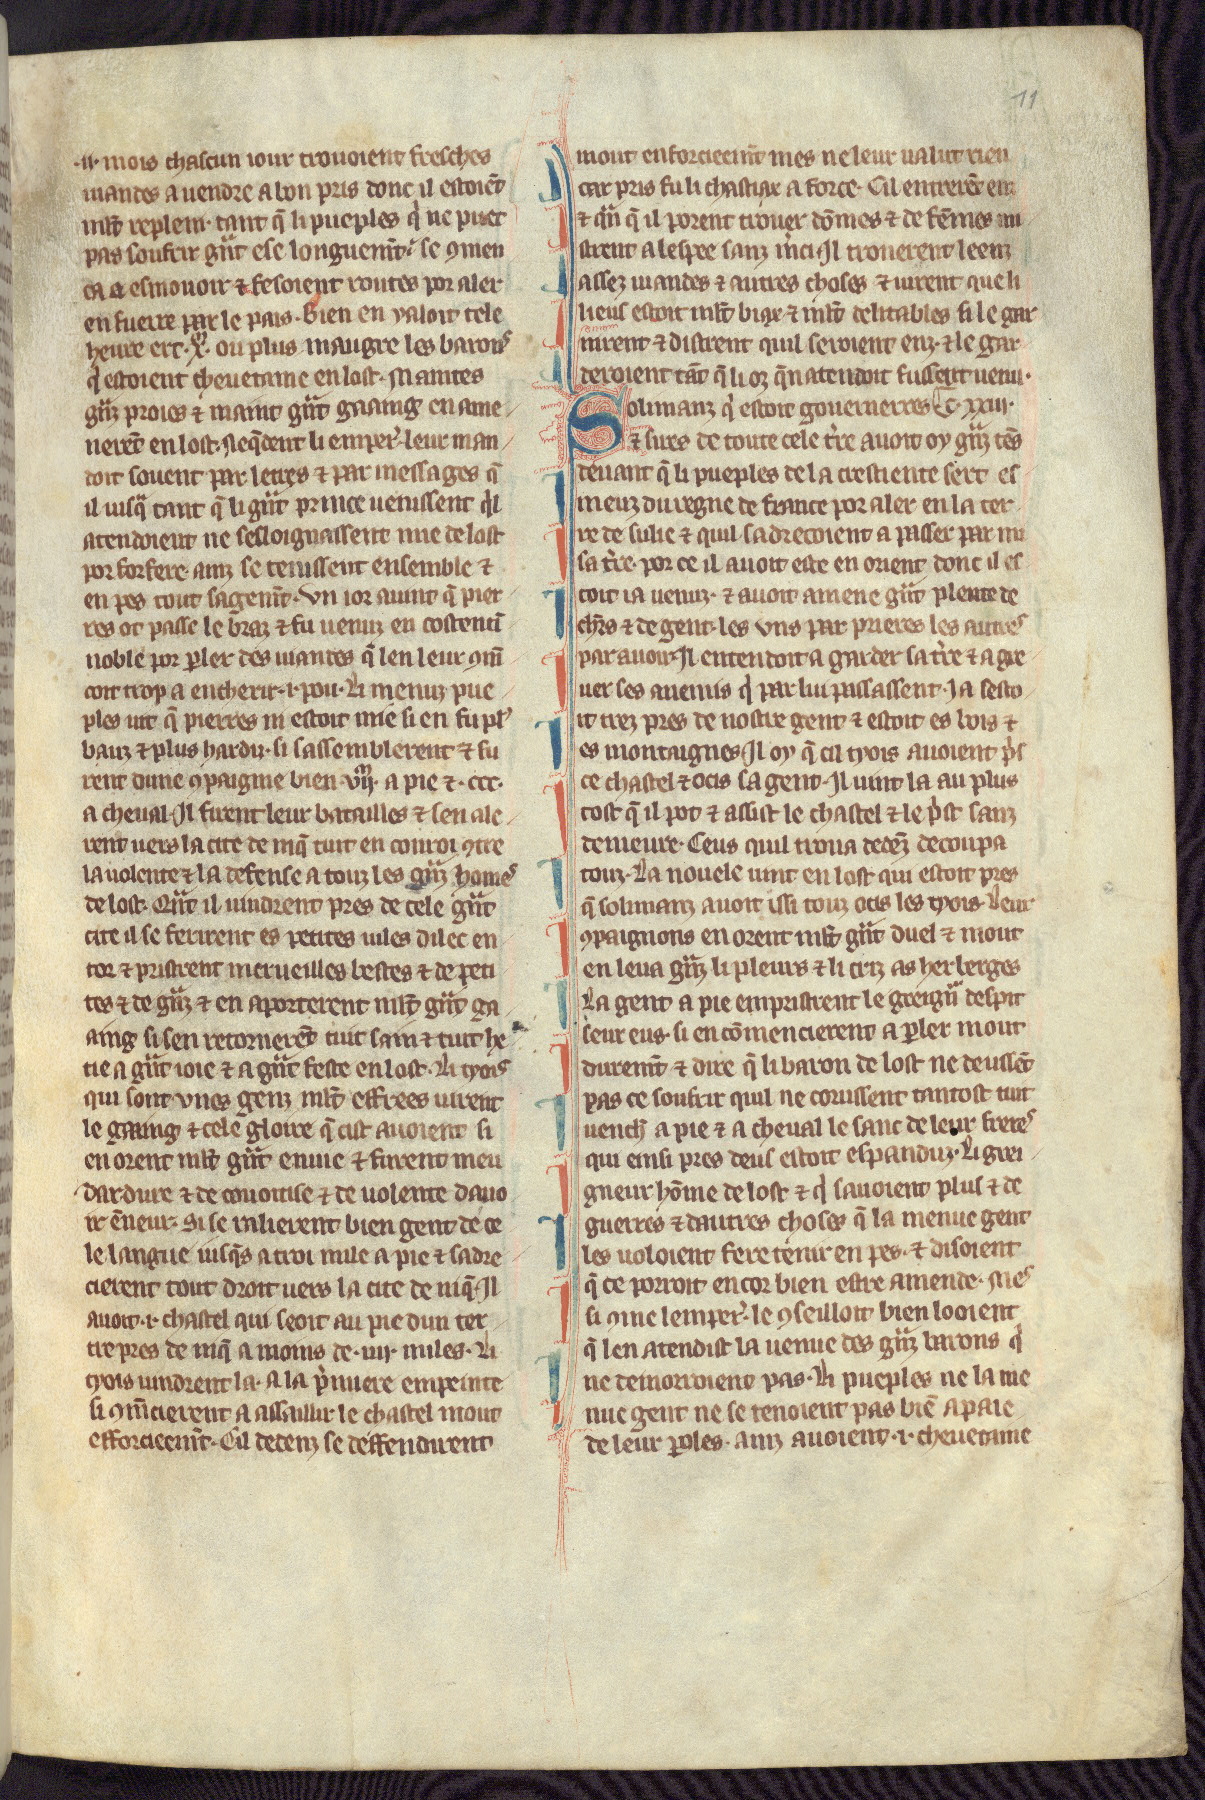 11
.ii. mois chascun iour trouoient fresches
uiandes a uendre a bon pris donc il estoiẽt
ml̃t replein. tant q̃ li pueples q̇ ne puet
pas soufrir gñt ese longuemt̃. se ꝯmen
ca a esmouoir ⁊ fesoient routes por aler
en fuerre par le pais. Bien en yaloit tele
heure ert .x.ͫ ou plus maugre les barons
q̇ estoient cheuetaine en lost. Maintes
gñz proies ⁊ maint gñt gaaing en ame
nerẽt en lost. Neq̃dent li emper̃. leur man
doit souent par letres ⁊ par messages q̃
il iusq̃ tant q̃ li gñt prince uenissent q̇l
atendoient ne sesloignassent mie de lost
por forfere. ainz se tenissent ensemble ⁊
en pes tout sagemt̃. Vn ior auint q̃ pier
res ot passe le braz ⁊ fu uenuz en costenti
noble por ꝑler des uiandes q̃ len leur ꝯm̃
coit trop a encherir .i. pou. Li menuz pue
ples uit q̃ pierres ni estoit mie si en fu plꝰ
bauz ⁊ plus hardiz. si sassemblerent ⁊ fu
rent dune ꝯpaignie bien .vij.ͫ a pie ⁊ .ccc.
a cheual. Il firent leur batailles ⁊ sen ale
rent uers la cite de niq̃ tuit en conroi ꝯtre
la uolente ⁊ la defense a touz les gñz homes
de lost. Q̃nt il uindrent pres de cele gñt
cite il se ferirent es petites uiles dilec en
tor ⁊ pristrent merueilles bestes ⁊ de peti
tes ⁊ de gñz ⁊ en aporterent ml̃t gñt ga
aing si sen retornerẽt tuit sain ⁊ tuit he
tie a gñt ioie ⁊ a gñt feste en lost. Li tyois
qui sont vnes genz ml̃t effrees uirent
le gaaing ⁊ cele gloire q̃ cist auoient si
en orent ml̃t gñt enuie ⁊ furent meu
dardure ⁊ de couoitise ⁊ de uolente dauo
ir ẽneur. Si se ralierent bien gent de ce
le langue iusq̃s a troi mile a pie ⁊ sadre
cierent tout droit uers la cite de niq̃. Il
auoit .i. chastel qui seoit au pie dun ter
tre pres de niq̃ a moins de .iiij. miles. Li
tyois uindrent la. a la p̍miere empeinte
si ꝯm̃cierent a assaillir le chastel mout
efforcieemt̃. Cil dedenz se deffendirent
mout enforcieemt̃ mes ne leur ualut rien
car pris fu li chastiax a force. Cil entrerẽt enz
⁊ q̃n q̃ il porent trouer dõmes ⁊ de fẽmes mi
strent a lespee sanz m̍ci. Il trouerent leenz
assez uiandes ⁊ autres choses ⁊ uirent que li
lieus estoit ml̃t biax ⁊ ml̃t delitables si le gar
nirent ⁊ distrent quil seroient enz. ⁊ le gar
deroient tãt q̃ li oz q̃n atendoit fussent uenu.
Solimanz q̇ estoit gouernerres C. xxiii.
⁊ sires de toute cele t̃re auoit oy gñz tẽs
deuant q̃ li pueples de la crestiente sert es
meuz du regne de france por aler en la ter
re de sulie ⁊ quil sadrecoient a passer par mi
sa t̃re. por ce il auoit este en orient donc il es
toit ia uenuz. ⁊ auoit amene gñt plente de
ch̃rs ⁊ de gent. les vns par prieres les autres
par auoir. Il entendoit a garder sa t̃re ⁊ a gre
uer ses anemis q̇ par lui passassent. Ja sesto
it trez pres de nostre gent ⁊ estoit es bois ⁊
es montaignes. Il oy q̃ cil tyois auoient p̍s
ce chastel ⁊ ocis sa gent. Il uint la au plus
tost q̃ il pot ⁊ assist le chastel ⁊ le p̍st sanz
demeure. Ceus quil troua dedẽz decoupa
touz. La nouele uint en lost qui estoit pres
q̃ solimanz auoit issi touz ocis les tyois. Leur
ꝯpaignons en orent ml̃t gñt duel ⁊ mout
en leua gñz li pleurs ⁊ li criz as herberges
La gent a pie empristrent le greigñ despit
seur eus. si en cõmencierent a ꝑler mout
duremt̃ ⁊ dire q̃ li baron de lost ne deussẽt
pas ce soufrir quil ne corussent tantost tuit
uench̃ a pie ⁊ a cheual le sanc de leur freres
qui einsi pres deus estoit espanduz. Li grei
gneur hõme de lost ⁊ q̇ sauoient plus ⁊ de
guerres ⁊ dautres choses q̃ la menue gent
les uoloient fere tenir en pes. ⁊ disoient
q̃ ce porroit encor bien estre amende. Mes
si ꝯme lemper̃. le ꝯseilloit bien looient
q̃ len atendist la uenue des gñz barons q̇
ne demorroient pas. Li pueples ne la me
nue gent ne se tenoient pas biẽ apaie
de leur ꝑoles. ainz auoient .i. cheuetaine